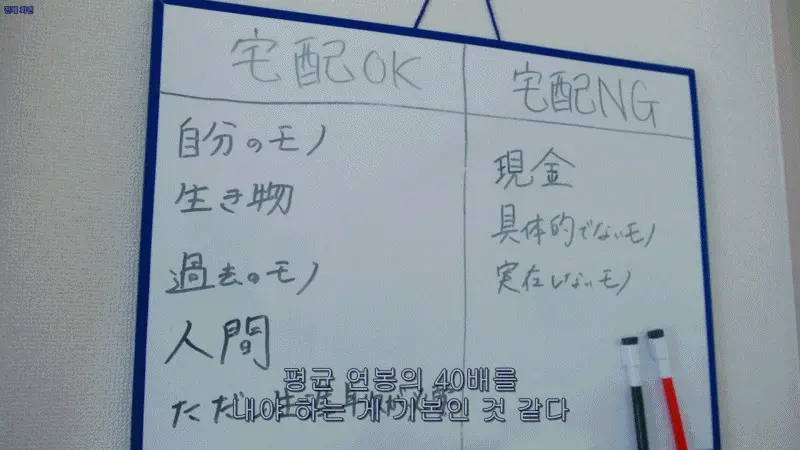 宅配OK
宅配NG
自分のモノ
生き物
過去のモノ
人間
ただし生涯年収必要
現金
具体的でないモノ
実在しないモノ
평균 연봉의 40배를
내야 하는 게 기본인 것 같다